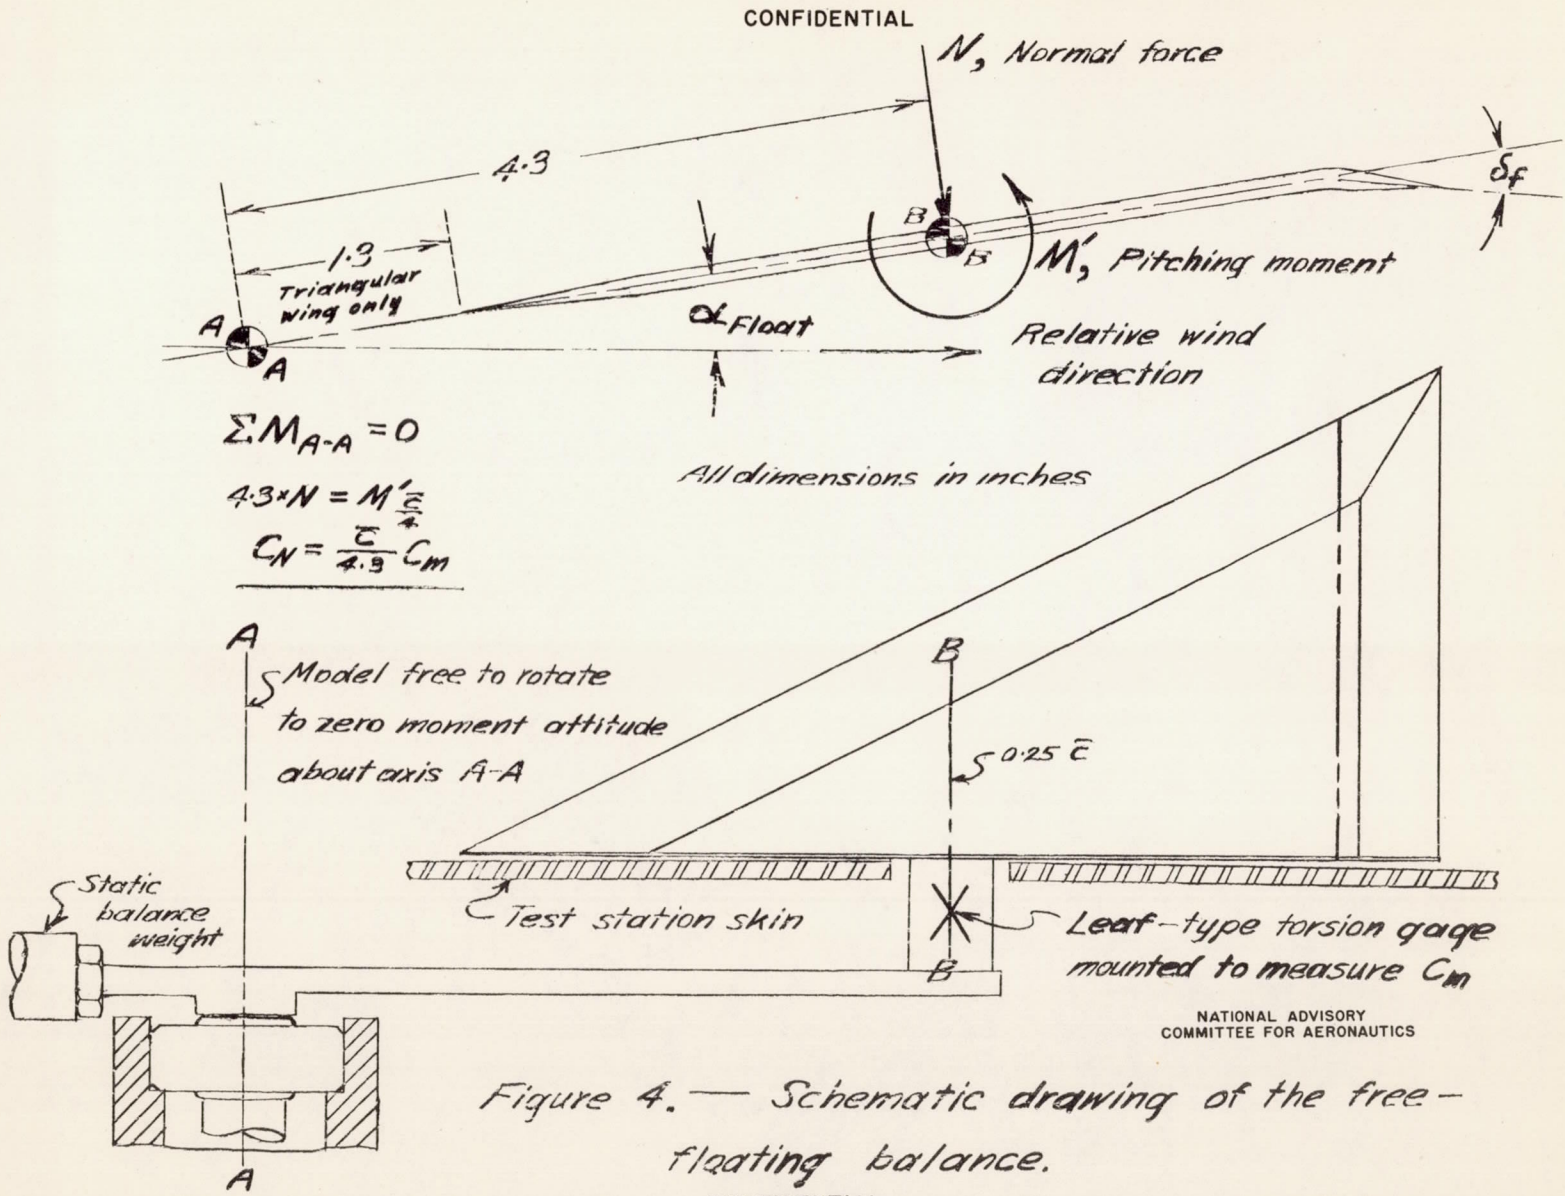 CONFIDENTIAL
N, Normal force
4.3
δf
1.3
Triangular
wing only
B
B
M', Pitching moment
α Float
A
A
Relative wind
direction
ΣM A-A = 0
All dimensions in inches
4.3×N = M' c̄/4
C_N = c̄/4.3 C_m
A
B
Model free to rotate
to zero moment attitude
about axis A-A
0.25 c̄
Static
balance
weight
Test station skin
Leaf-type torsion gage
mounted to measure Cm
B
NATIONAL ADVISORY
COMMITTEE FOR AERONAUTICS
Figure 4. — Schematic drawing of the free-
floating balance.
A